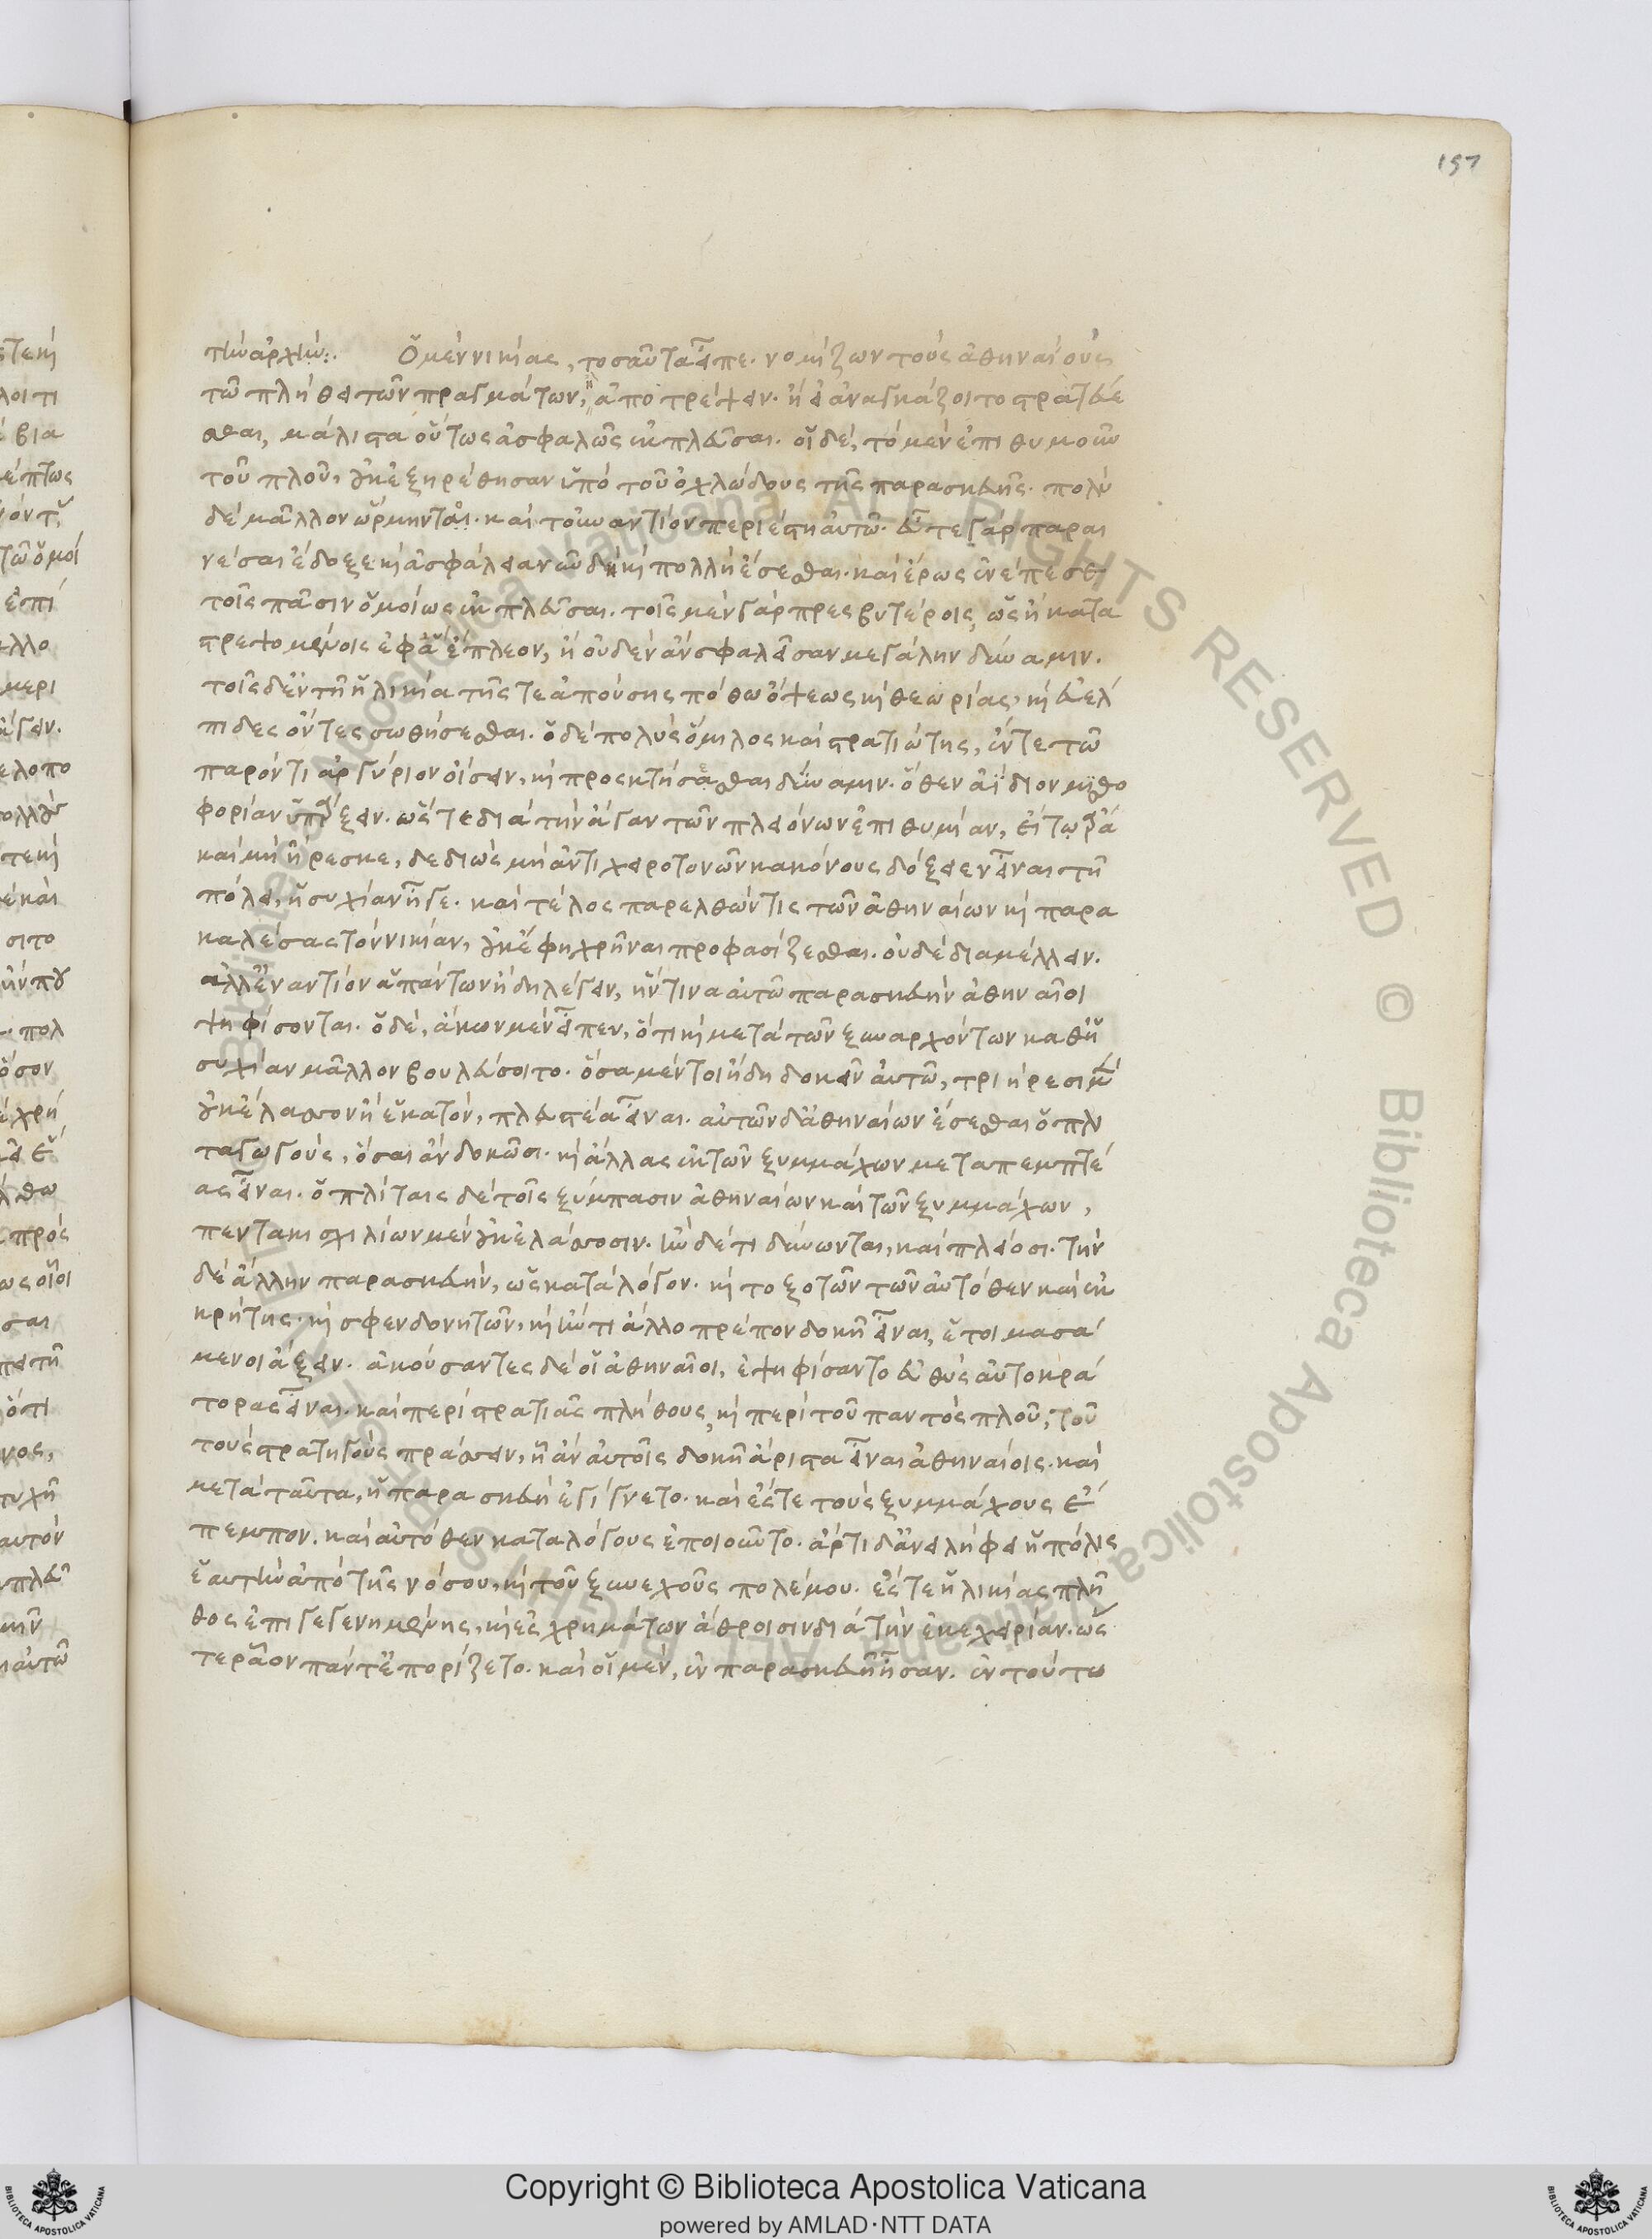 157
τὴν ἀρχήν:. Ὁ μὲν νικίας, τοσαῦτα εἶπε. νομίζων τοὺς ἀθηναίους
τῶ πλήθει τῶν πραγμάτων, ἢ ἀποτρέψειν. ἢ εἰ ἀναγκάζοιτο στρατεύε
σθαι, μάλιστα οὕτως ἀσφαλῶς ἐκπλεῦσαι. οἱ δὲ, τὸ μὲν ἐπιθυμοῦν
τοῦ πλοῦ, οὐκ ἐξηρέθησαν ὑπὸ τοῦ ὀχλώδους τῆς παρασκευῆς. πολὺ
δὲ μᾶλλον ὥρμηντο. καὶ τοὐναντίον περιέστη αὐτῶ. εὖ τε γὰρ παραι
νέσαι ἔδοξε καὶ ἀσφάλεια νῦν δὴ καὶ πολλὴ ἔσεσθαι. καὶ ἔρως ἐνέπεσε
τοῖς πᾶσιν ὁμοίως ἐκπλεῦσαι. τοῖς μὲν γὰρ πρεσβυτέροις, ὡς ἢ κατα
στρεψομένοις ἐφ' ἃ ἔπλεον, ἢ οὐδὲν ἂν σφαλεῖσαν μεγάλην δύναμιν.
τοῖς δ' ἐν τῆ ἡλικία τῆς τε ἀπούσης πόθω ὄψεως καὶ θεωρίας, καὶ εὐέλ
πιδες ὄντες σωθήσεσθαι. ὁ δὲ πολὺς ὅμιλος καὶ στρατιώτης, ἔν τε τῶ
παρόντι ἀργύριον οἴσειν, καὶ προσκτήσασθαι δύναμιν. ὅθεν ἀΐδιον μισθο
φορίαν ὑπάρξειν. ὥστε διὰ τὴν ἄγαν τῶν πλεόνων ἐπιθυμίαν, εἴ τω ἄρα
καὶ μὴ ἤρεσκε, δεδιὼς μὴ ἀντιχειροτονῶν κακόνους δόξειεν εἶναι τῆ
πόλει, ἡσυχίαν ἦγε. καὶ τέλος παρελθών τις τῶν ἀθηναίων καὶ παρα
καλέσας τὸν νικίαν, οὐκ ἔφη χρῆναι προφασίζεσθαι. οὐδὲ διαμέλλειν.
ἀλλ' ἐναντίον ἁπάντων ἤδη λέγειν, ἥντινα αὐτῶ παρασκευὴν ἀθηναῖοι
ψηφίσονται. ὁ δὲ, ἄκων μὲν εἶπεν, ὅτι καὶ μετὰ τῶν ξυναρχόντων καθ' ἡ
συχίαν μᾶλλον βουλεύσοιτο. ὅσα μέντοι ἤδη δοκεῖν αὐτῶ, τριήρεσι μὲν
οὐκ ἔλασσον ἢ ἑκατὸν, πλευστέα εἶναι. αὐτῶν δ' ἀθηναίων ἔσεσθαι ὁπλι
ταγωγοὺς, ὅσαι ἂν δοκῶσι. καὶ ἄλλας ἐκ τῶν ξυμμάχων μεταπεμπτέ
ας εἶναι. ὁπλίταις δὲ τοῖς ξύμπασιν ἀθηναίων καὶ τῶν ξυμμάχων,
πεντακισχιλίων μὲν οὐκ ἐλάσσοσιν. ἢν δέ τι δύνωνται, καὶ πλέοσι. τὴν
δὲ ἄλλην παρασκευὴν, ὡς κατὰ λόγον. καὶ τοξοτῶν τῶν αὐτόθεν καὶ ἐκ
κρήτης. καὶ σφενδονητῶν, καὶ ἤν τι ἄλλο πρέπον δοκῆ εἶναι, ἑτοιμασά
μενοι ἄξειν. ἀκούσαντες δὲ οἱ ἀθηναῖοι, ἐψηφίσαντο εὐθὺς αὐτοκρά
τορας εἶναι. καὶ περὶ στρατιᾶς πλήθους, καὶ περὶ τοῦ παντὸς πλοῦ, τοὺ
τοὺς στρατηγοὺς πράσσειν, ἧ ἂν αὐτοῖς δοκῆ ἄριστα εἶναι ἀθηναίοις. καὶ
μετὰ ταῦτα, ἡ παρασκευὴ ἐγίγνετο. καὶ ἔς τε τοὺς ξυμμάχους ἔ
πεμπον. καὶ αὐτόθεν καταλόγους ἐποιοῦντο. ἄρτι δ' ἀνειλήφει ἡ πόλις
ἑαυτὴν ἀπὸ τῆς νόσου, καὶ τοῦ ξυνεχοῦς πολέμου. ἔς τε ἡλικίας πλῆ
θος ἐπιγεγενημένης, καὶ ἐς χρημάτων ἄθροισιν διὰ τὴν ἐκεχειρίαν. ὥς
τε ρᾶον πάντ' ἐπορίζετο. καὶ οἱ μὲν, ἐν παρασκευῆ ἦσαν. ἐν τούτω
Copyright © Biblioteca Apostolica Vaticana
powered by AMLAD·NTT DATA